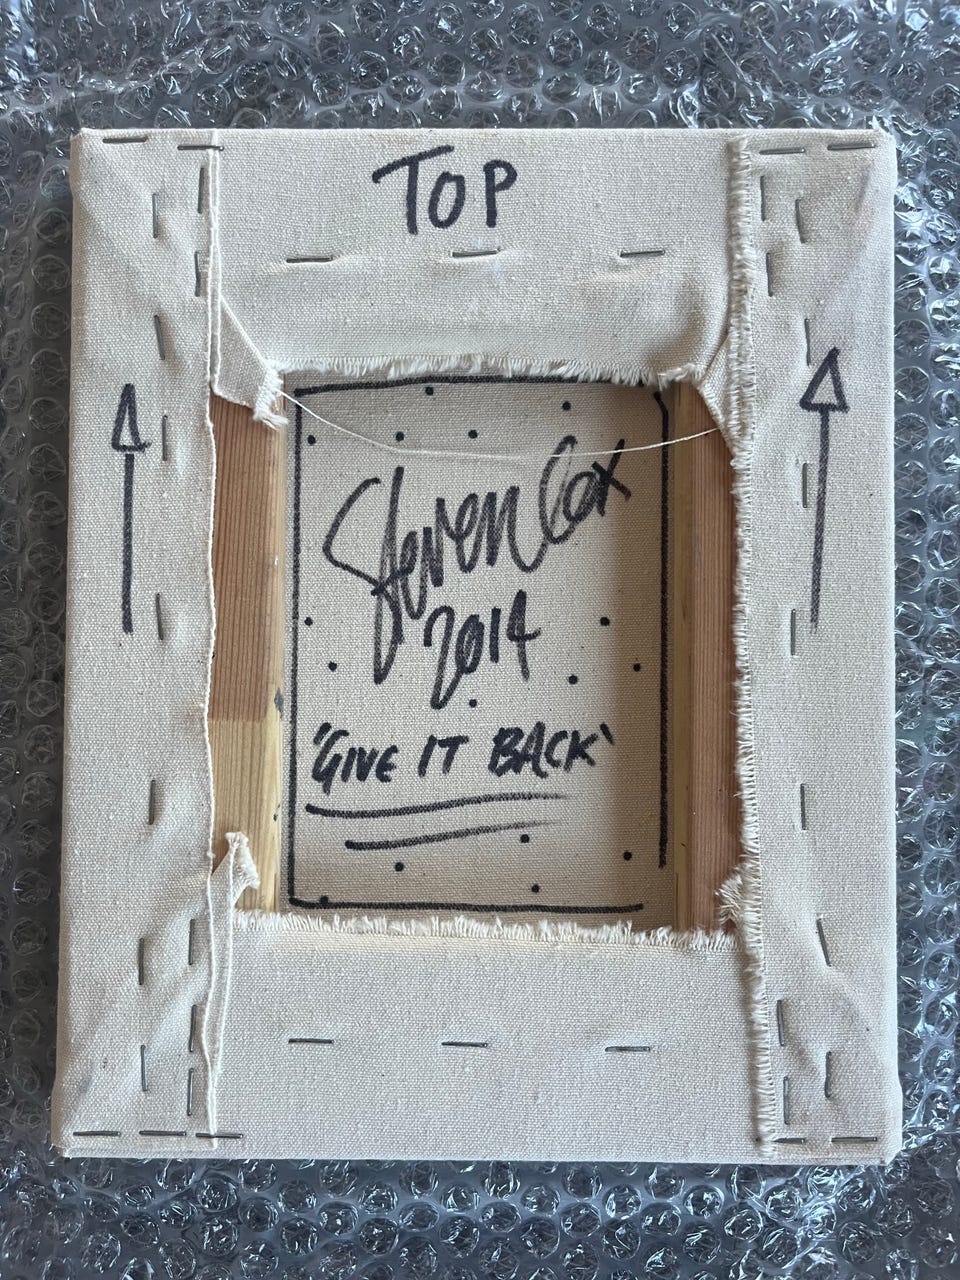 TOP
Steven Cox
2014
'GIVE IT BACK'